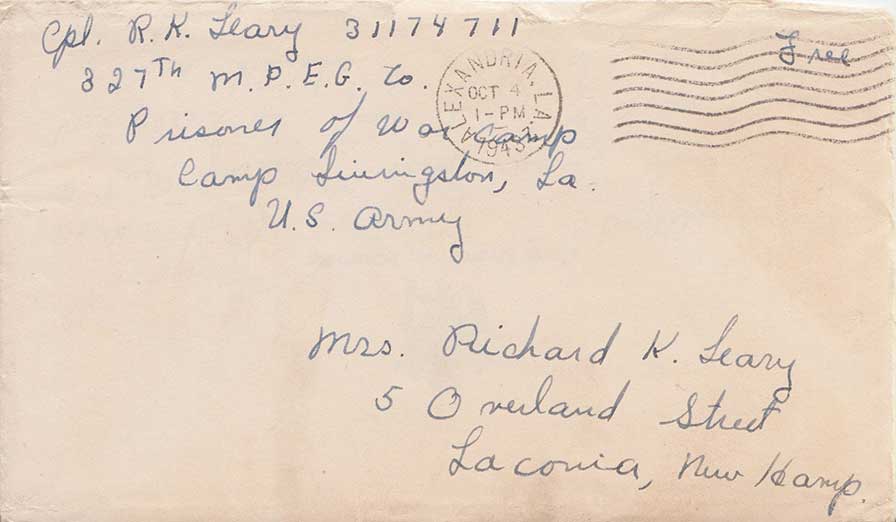 Cpl. R. K. Leary 31174711
327TH M.P.E.G. Co.
Prisoner of War Camp
Camp Livingston, La.
U.S. Army
ALEXANDRIA, LA.
OCT 4
1-PM
1943
Free
Mrs. Richard K. Leary
5 Overland Street
Laconia, New Hamp.